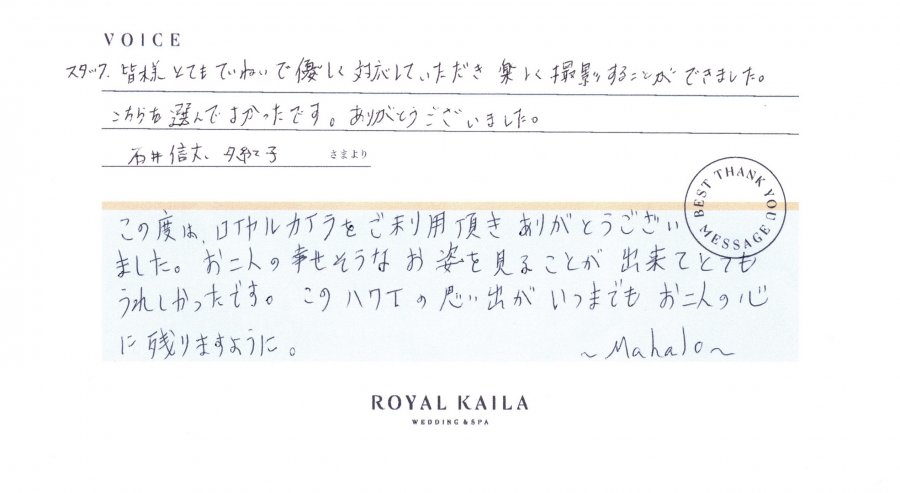 VOICE
スタッフ、皆様とてもていねいで優しく対応していただき楽しく撮影することができました。
こちらを選んでよかったです。ありがとうございました。
石井信太、夕紀子 さまより
BEST THANK YOU MESSAGE
この度は、ロイヤルカイラをご利用頂きありがとうござい
ました。お二人の幸せそうなお姿を見ることが出来てとても
うれしかったです。このハワイの思い出がいつまでもお二人の心
に残りますように。 ~Mahalo~
ROYAL KAILA
WEDDING & SPA